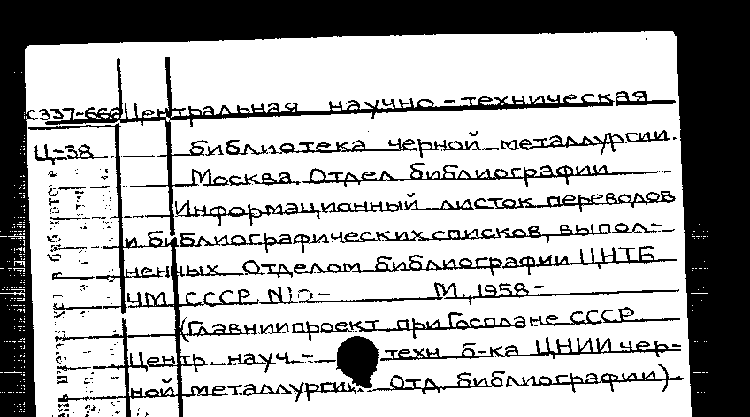 С337-668 Центральная научно-техническая
Ц-38 библиотека черной металлургии.
Москва. Отдел библиографии
Информационный листок переводов
и библиографических списков, выпол-
ненных Отделом библиографии ЦНТБ
ЧМ СССР. N1о- М., 1958-
(Главниипроект при Госплане СССР
Центр. науч.- техн б-ка ЦНИИ чер-
ной металлургии. Отд. библиографии)